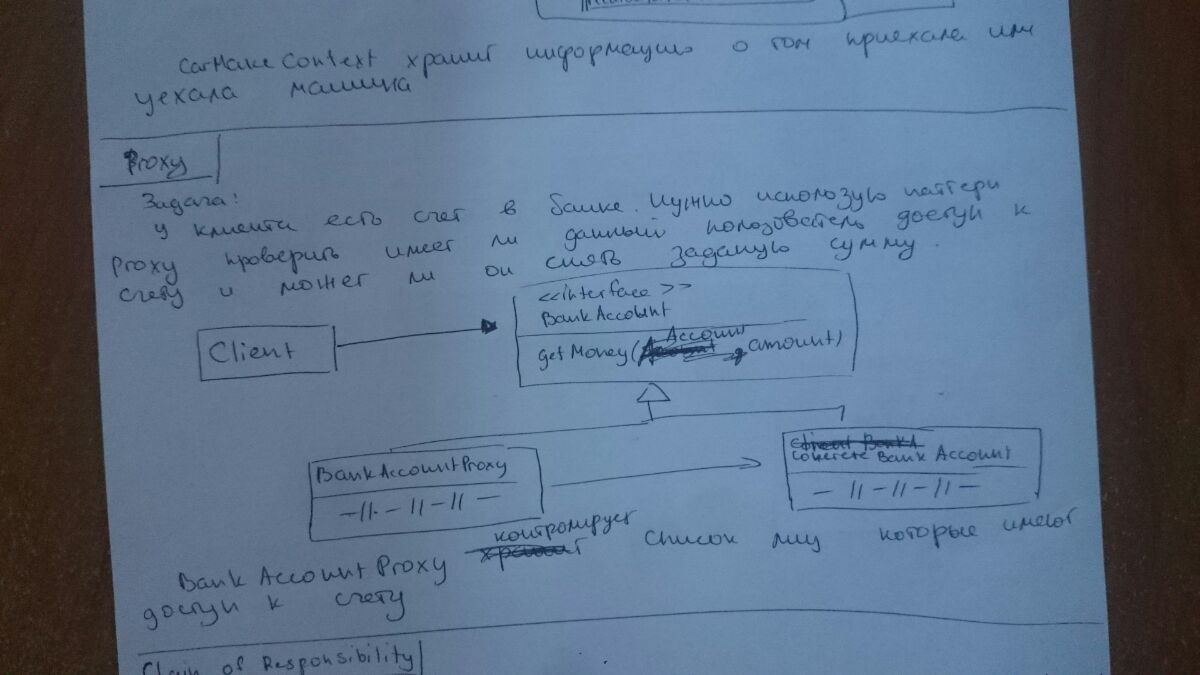 CarMake Context хранит информацию о том приехала или
уехала машина
Proxy
Задача:
У клиента есть счет в банке. Нужно использую паттерн
Proxy проверить имеет ли данный пользователь доступ к
счету и может ли он снять заданую сумму.
<<interface>>
BankAccount
Client
Account
getMoney( amount)
BankAccountProxy
Concrete Bank Account
—//—//—//—
—//—//—//—
контролирует
Bank Account Proxy список лиц которые имеют
доступ к счету
Chain of Responsibility